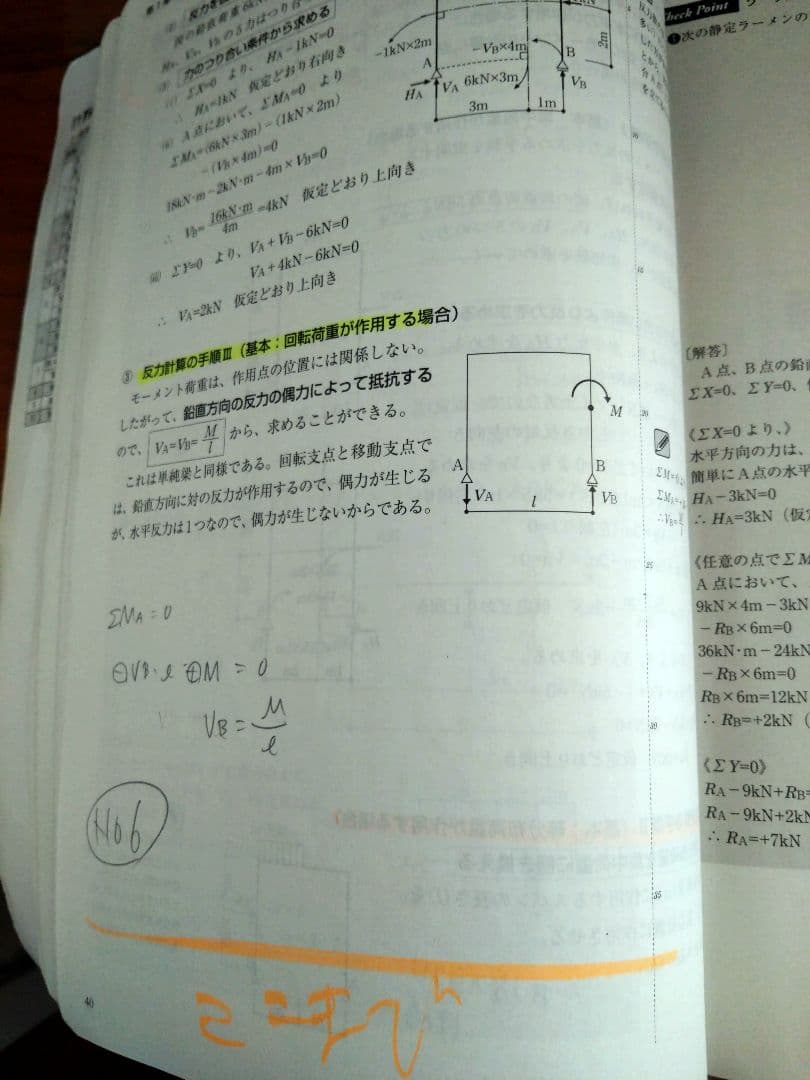 反力を
力のつり合い条件から求める
ΣX=0 より、HA－1kN=0
∴ HA=1kN 仮定どおり右向き
A点において、ΣMA=0 より
ΣMA=(6kN×3m)－(1kN×2m)
－(VB×4m)=0
18kN･m－2kN･m－4m×VB=0
∴ VB= 16kN･m/4m =4kN 仮定どおり上向き
ΣY=0 より、VA+VB－6kN=0
VA+4kN－6kN=0
∴ VA=2kN 仮定どおり上向き
－1kN×2m
－VB×4m
2m
A
B
HA
VA
6kN×3m
VB
3m
1m
③ 反力計算の手順Ⅲ(基本：回転荷重が作用する場合)
モーメント荷重は、作用点の位置には関係しない。
したがって、鉛直方向の反力の偶力によって抵抗する
ので、VA=VB= M/l から、求めることができる。
これは単純梁と同様である。回転支点と移動支点で
は、鉛直方向に対の反力が作用するので、偶力が生じる
が、水平反力は1つなので、偶力が生じないからである。
M
A
B
VA
l
VB
ΣMA=0
⊖VB･l ⊕M = 0
VB = M/l
No6
ここまで
40
25
35
Check Point
❶次の静定ラーメンの
[解答]
A点、B点の鉛
ΣX=0、ΣY=0、
《ΣX=0 より、》
水平方向の力は、
簡単にA点の水平
HA－3kN=0
∴ HA=3kN (仮
《任意の点でΣM
A点において、
9kN×4m－3kN
－RB×6m=0
36kN･m－24kN
－RB×6m=0
RB×6m=12kN
∴ RB=+2kN (
《ΣY=0》
RA－9kN+RB=
RA－9kN+2kN
∴ RA=+7kN